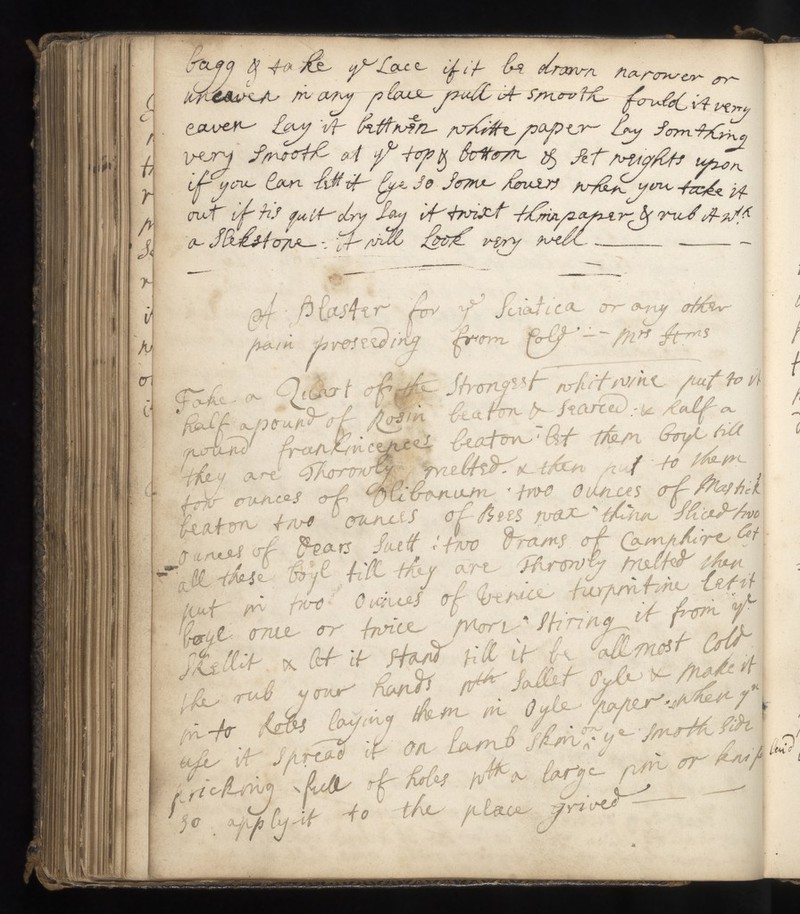 bagg & take ye Lace if it be drawn narower or
uneaven in any place pull it smooth fould it very
eaven Lay it bettwen whitte paper Lay Somthing
very Smooth at ye top & bottom & Set weights upon
if you Can lett it Lye So Some houers when you take it
out if tis quit dry Lay it twixt thin paper & rub it wth
a Slekstone : it will Look very well
A Plaster for ye Sciatica or any other
pain proseeding from Cold Mrs
Take a Quart of the Strongest whit wine put to it
half a pound of Rosin beaton & Searced : & half a
pound frankincences beaton : let them boyl till
they are Thorowly melted . & then put to them
tow ounces of Olibanum : two ounces of Mastick
beaton two ounces of Bees wax thinn Sliced two
ounees of Dears Suett : two Drams of Camphire let
all these boyl till they are Throwly melted then
put in two Ounces of Venice turpintine let it
boyle once or twice more Stiring it from ye
Skellit & let it Stand till it be all most Cold
the rub your hands wth Sallet Oyle & Make it
in to Roles laying them in Oyle paper . when yu
use it Spread it on Lamb Skin on ye Smoth Side
pricking full of holes wth a large pin or knif
So apply it to the place grived